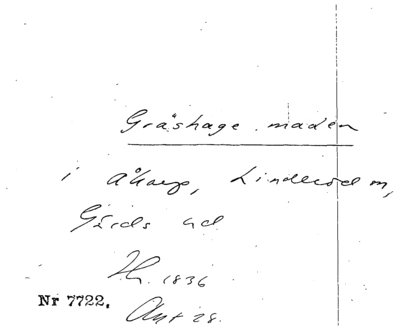 Gråshage maden
i Åkarp, Linderöd sn,
Gärds hd
1836
Nr 7722.
28.